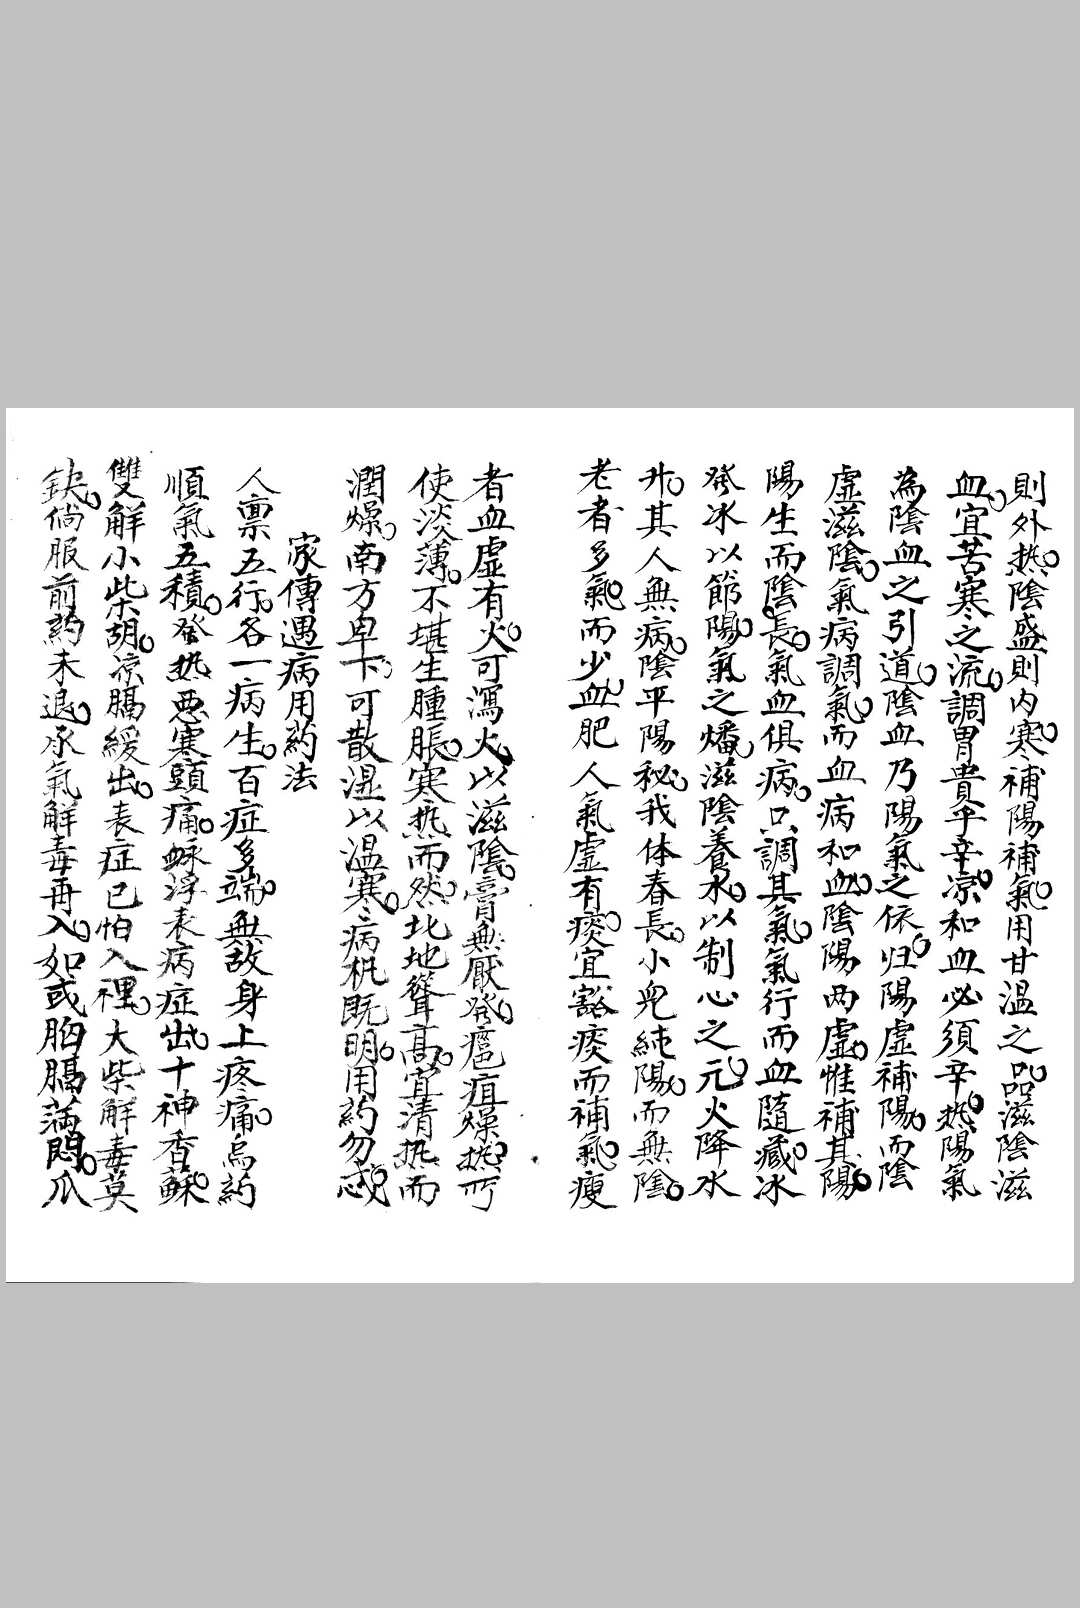 則外热。陰盛則内寒。補陽補氣。用甘温之品。滋陰滋
血。宜苦寒之流。調胃貴乎辛凉。和血必須辛热。陽氣
為陰血之引道。陰血乃陽氣之依归。陽虚補陽。而陰
虚滋陰。氣病調氣。而血病和血。陰陽两虚。惟補其陽。
陽生而陰長。氣血俱病。只調其氣。氣行而血隨。藏冰
發冰以節陽。氣之燔。滋陰養水。以制心之元。火降水
升。其人無病。陰平陽秘。我体春長。小兒純陽。而無陰。
老者多氣。而少血。肥人氣虚有痰。宜豁痰而補氣。瘦
者血虚有火。可瀉火以滋陰。膏無厭發疽疽燥热所
使。淡薄。不堪生腫脹。寒热而然。北地聳高。宜清热而
潤燥。南方卑下。可散湿以温寒。病机既明。用药勿惑。
家傳遇病用药法
人禀五行。各一病生。百症多端。無故身上疼痛。烏药
順氣五積。發热惡寒頭痛。脉浮表病症出。十神香蘇。
雙解小柴胡。凉膈緩出。表症已怕入裡。大柴解毒莫
缺。倘服前药未退。承氣解毒再入。如或胸膈滿悶。瓜